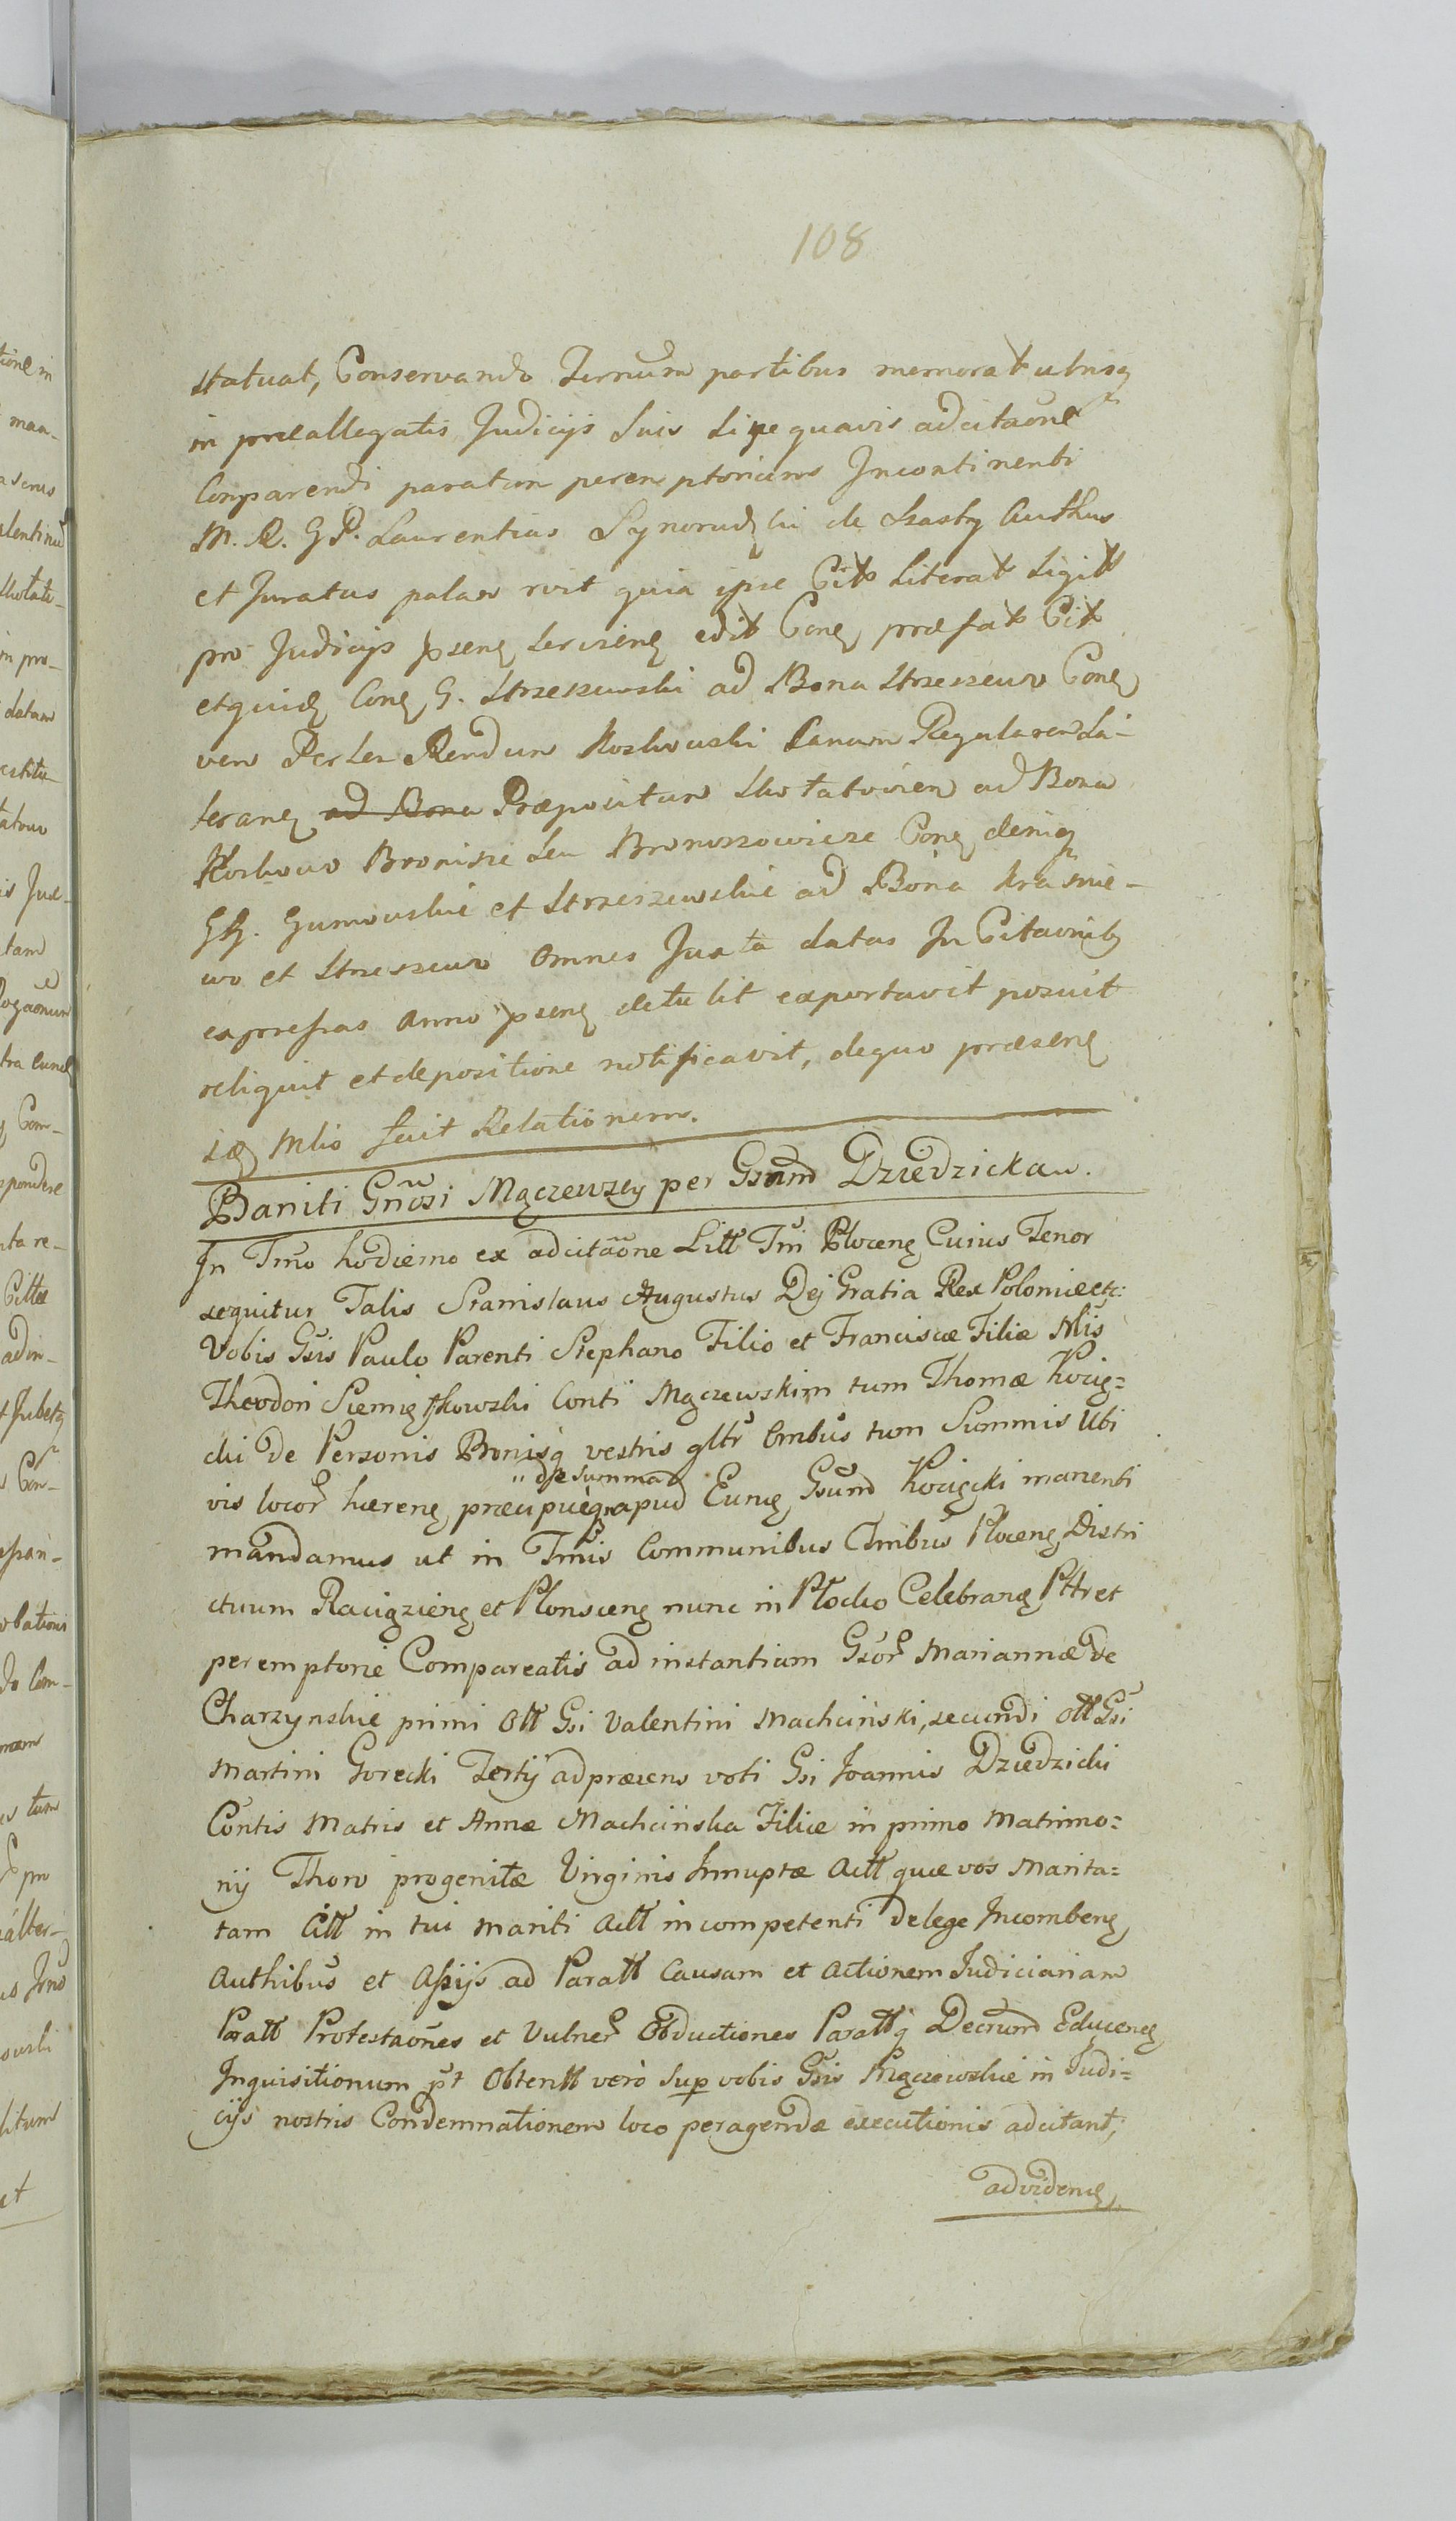 108
statuat, Conservando Ternum partibus memorat utrisq
in præallegatis Judicijs suis sine quavis adcitaõne
Comparendi paratam peremptorium Incontinenti
M. R. G P. Laurentius Synorudzki de Authus
et Juratus palam rvit quia ipse Citt Literat Sigitt
pro Judicijs pseng edit Cong præfat Cit
etquidg Cong G. Strzeszewski ad Bona Strzeszewo Cong
vero Perlen Rendum Koskowski Canum Regularem La-
terang ad Bona Præpositum ad Bona
Koskowo Bronisie seu Bromszowieze Cong deniq
GG. Gumowskie et Strzeszewskie ad Bona Kraśnie-
wo et Strzeszewo Omnes Juxta datas In Citaõnibg
expressas Anno pseng detulit exportavit posuit
reliquit et depositione notificavit, dequo præseng
sæ Mlio fecit Relationem.
Baniti Gnosi Mączewszy per Gsnm Dziedzickaw.
In Tmo hodierno ex adcitaõne Litt Tri Ploceng Cuius Tenor
sequitur Talis Stanislaus Augustus Dej Gratia Rex Poloniæ etc:
Vobis Gsis Paulo Parenti Stephano Filio et Franciscæ Filiæ Mlis
Theodori Siemiętkowski Conti Mączewskim tum Thomæ Kocię=
cki de Personis Bonisq vestris gltr Ombus tum Summis Ubi
" dse summad
vis locor hæreng præcipuèq apud Eung Gsum Kocięcki manenti
mandamus ut in Tmis Communibus Ombus Ploceng Distri
ctuum Raciązieng et Plonsceng nunc in Płocko Celebrang Pttr et
peremptorie Compareatis ad instantiam Gsor Mariannæ de
Charzynskie primi Ott Gsi Valentini Machciński, secundi Ott Gsi
Martini Gorecki Tertij adpræsens voti Gsi Joannis Dziedzicki
Contis Matris et Annæ Machcińska Filiæ in primo Matrimo=
nij Thoro progenitæ Virginis Innuptæ Actt quæ vos Marita=
tam Citt in tui Mariti Actt incompetenti delege Incombeng
Authibus et Assijs ad Paratt Causam et Actionem Judiciariam
Paratt Protestaõnes et Vulner Obductiones Parattq Decrum Educeng
Inquisitionum pt Obtentt verò Sup vobis Gsis Mączewskie in Judi=
cijs nostris Condemnationem loco peragendæ executionis adcitant,
advideng